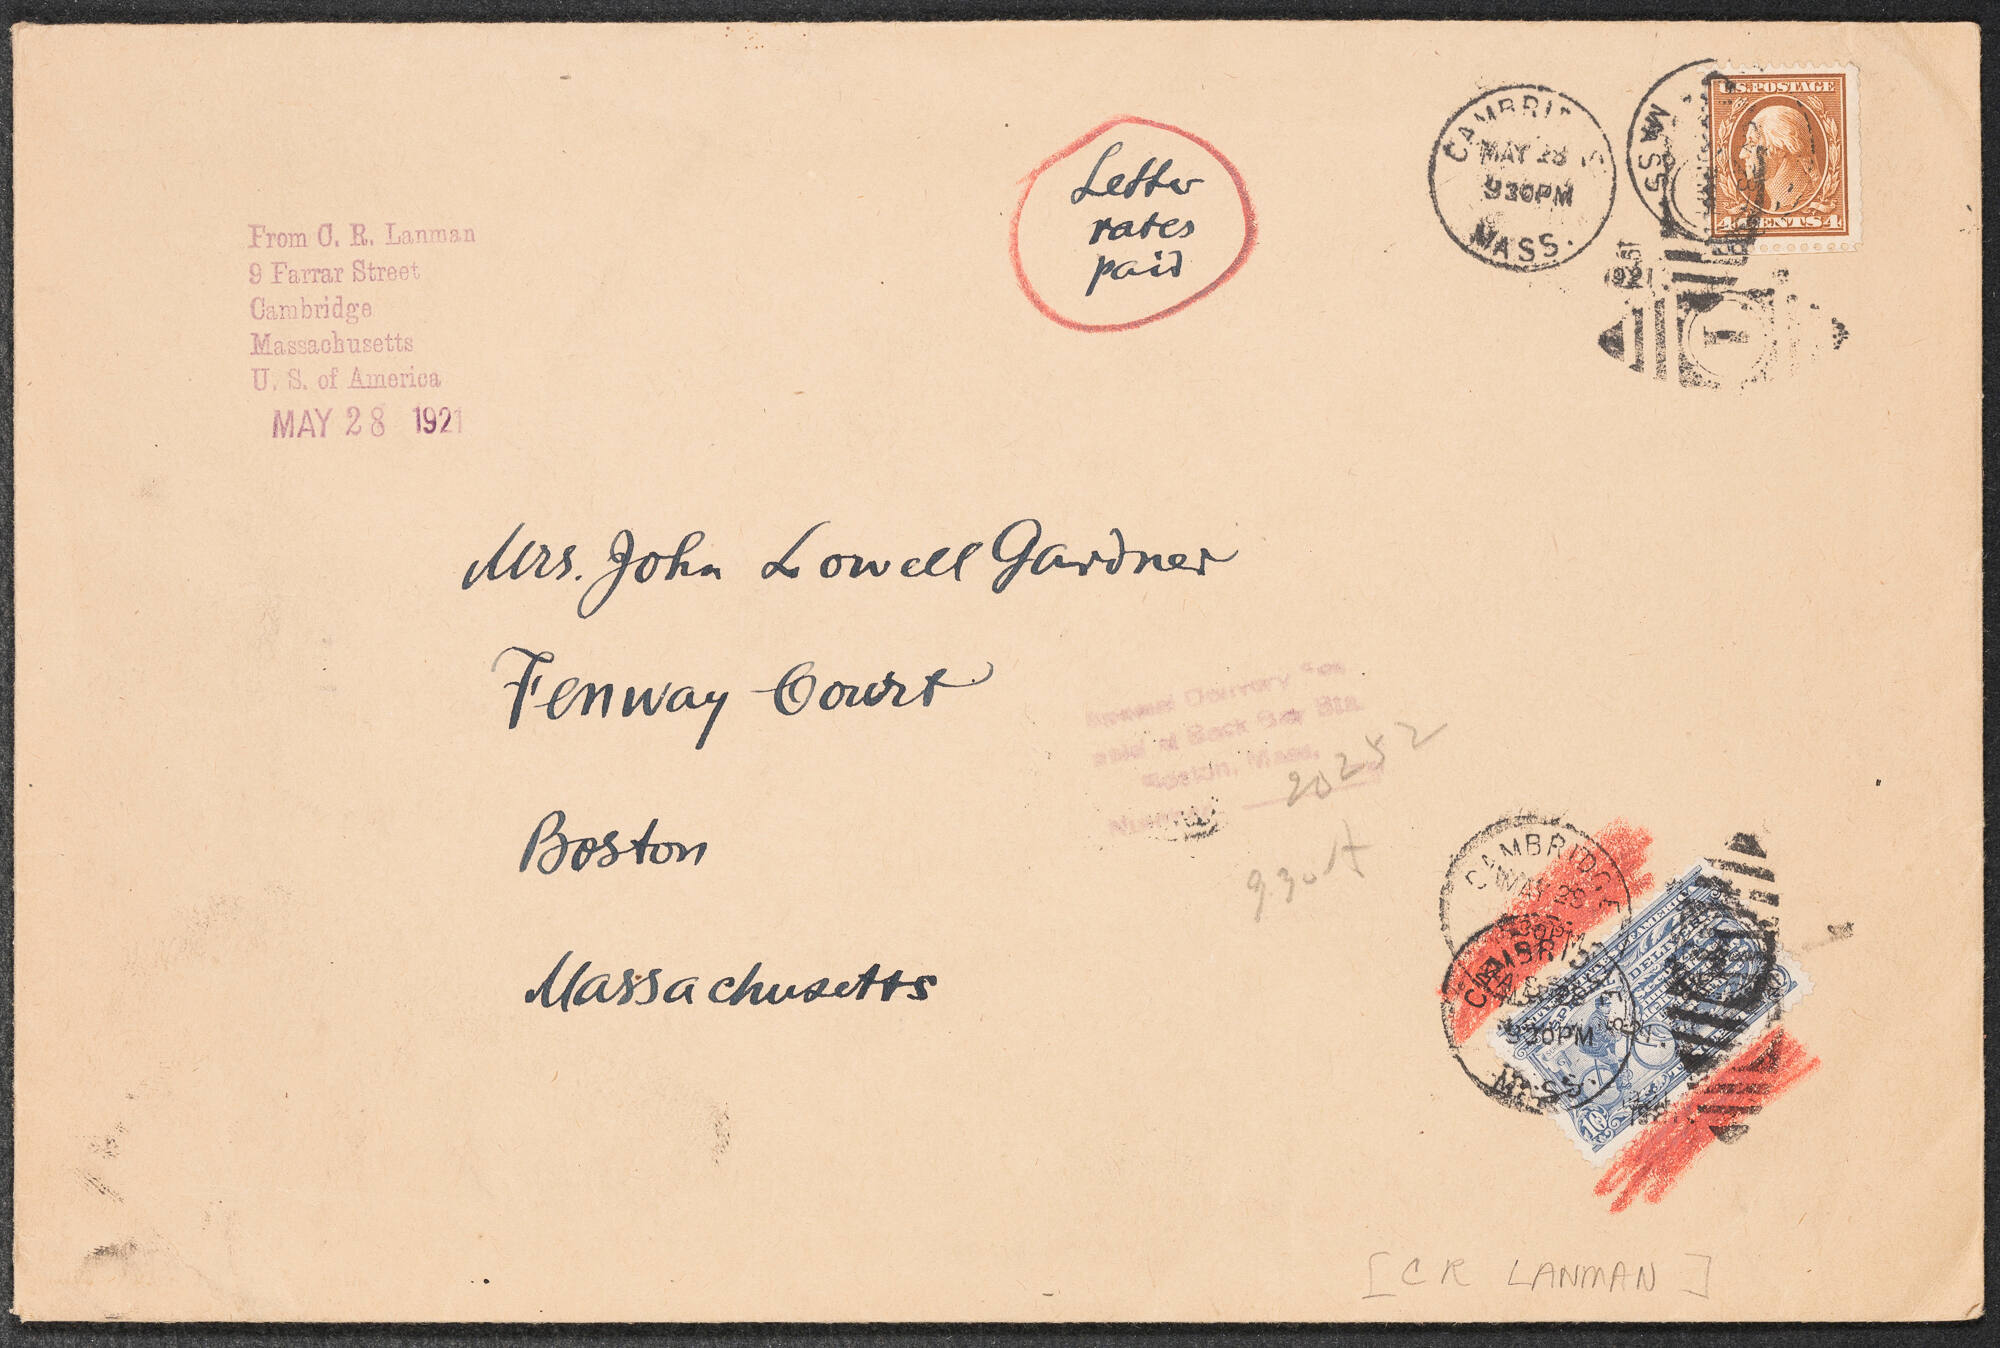 From C. R. Lanman
9 Farrar Street
Cambridge
Massachusetts
U. S. of America
MAY 28 1921
Letter
rates
paid
MAY 28
930PM
MASS.
MASS
1921
1
U.S. POSTAGE
4 CENTS 4
Mrs. John Lowell Gardner
Fenway Court
Boston
Massachusetts
Delivery
at Back Bay Sta.
Boston, Mass.
20252
9.30 A
CAMBRIDGE
MAY 28
930PM
MASS.
DELIVERY
10
[C R LANMAN]